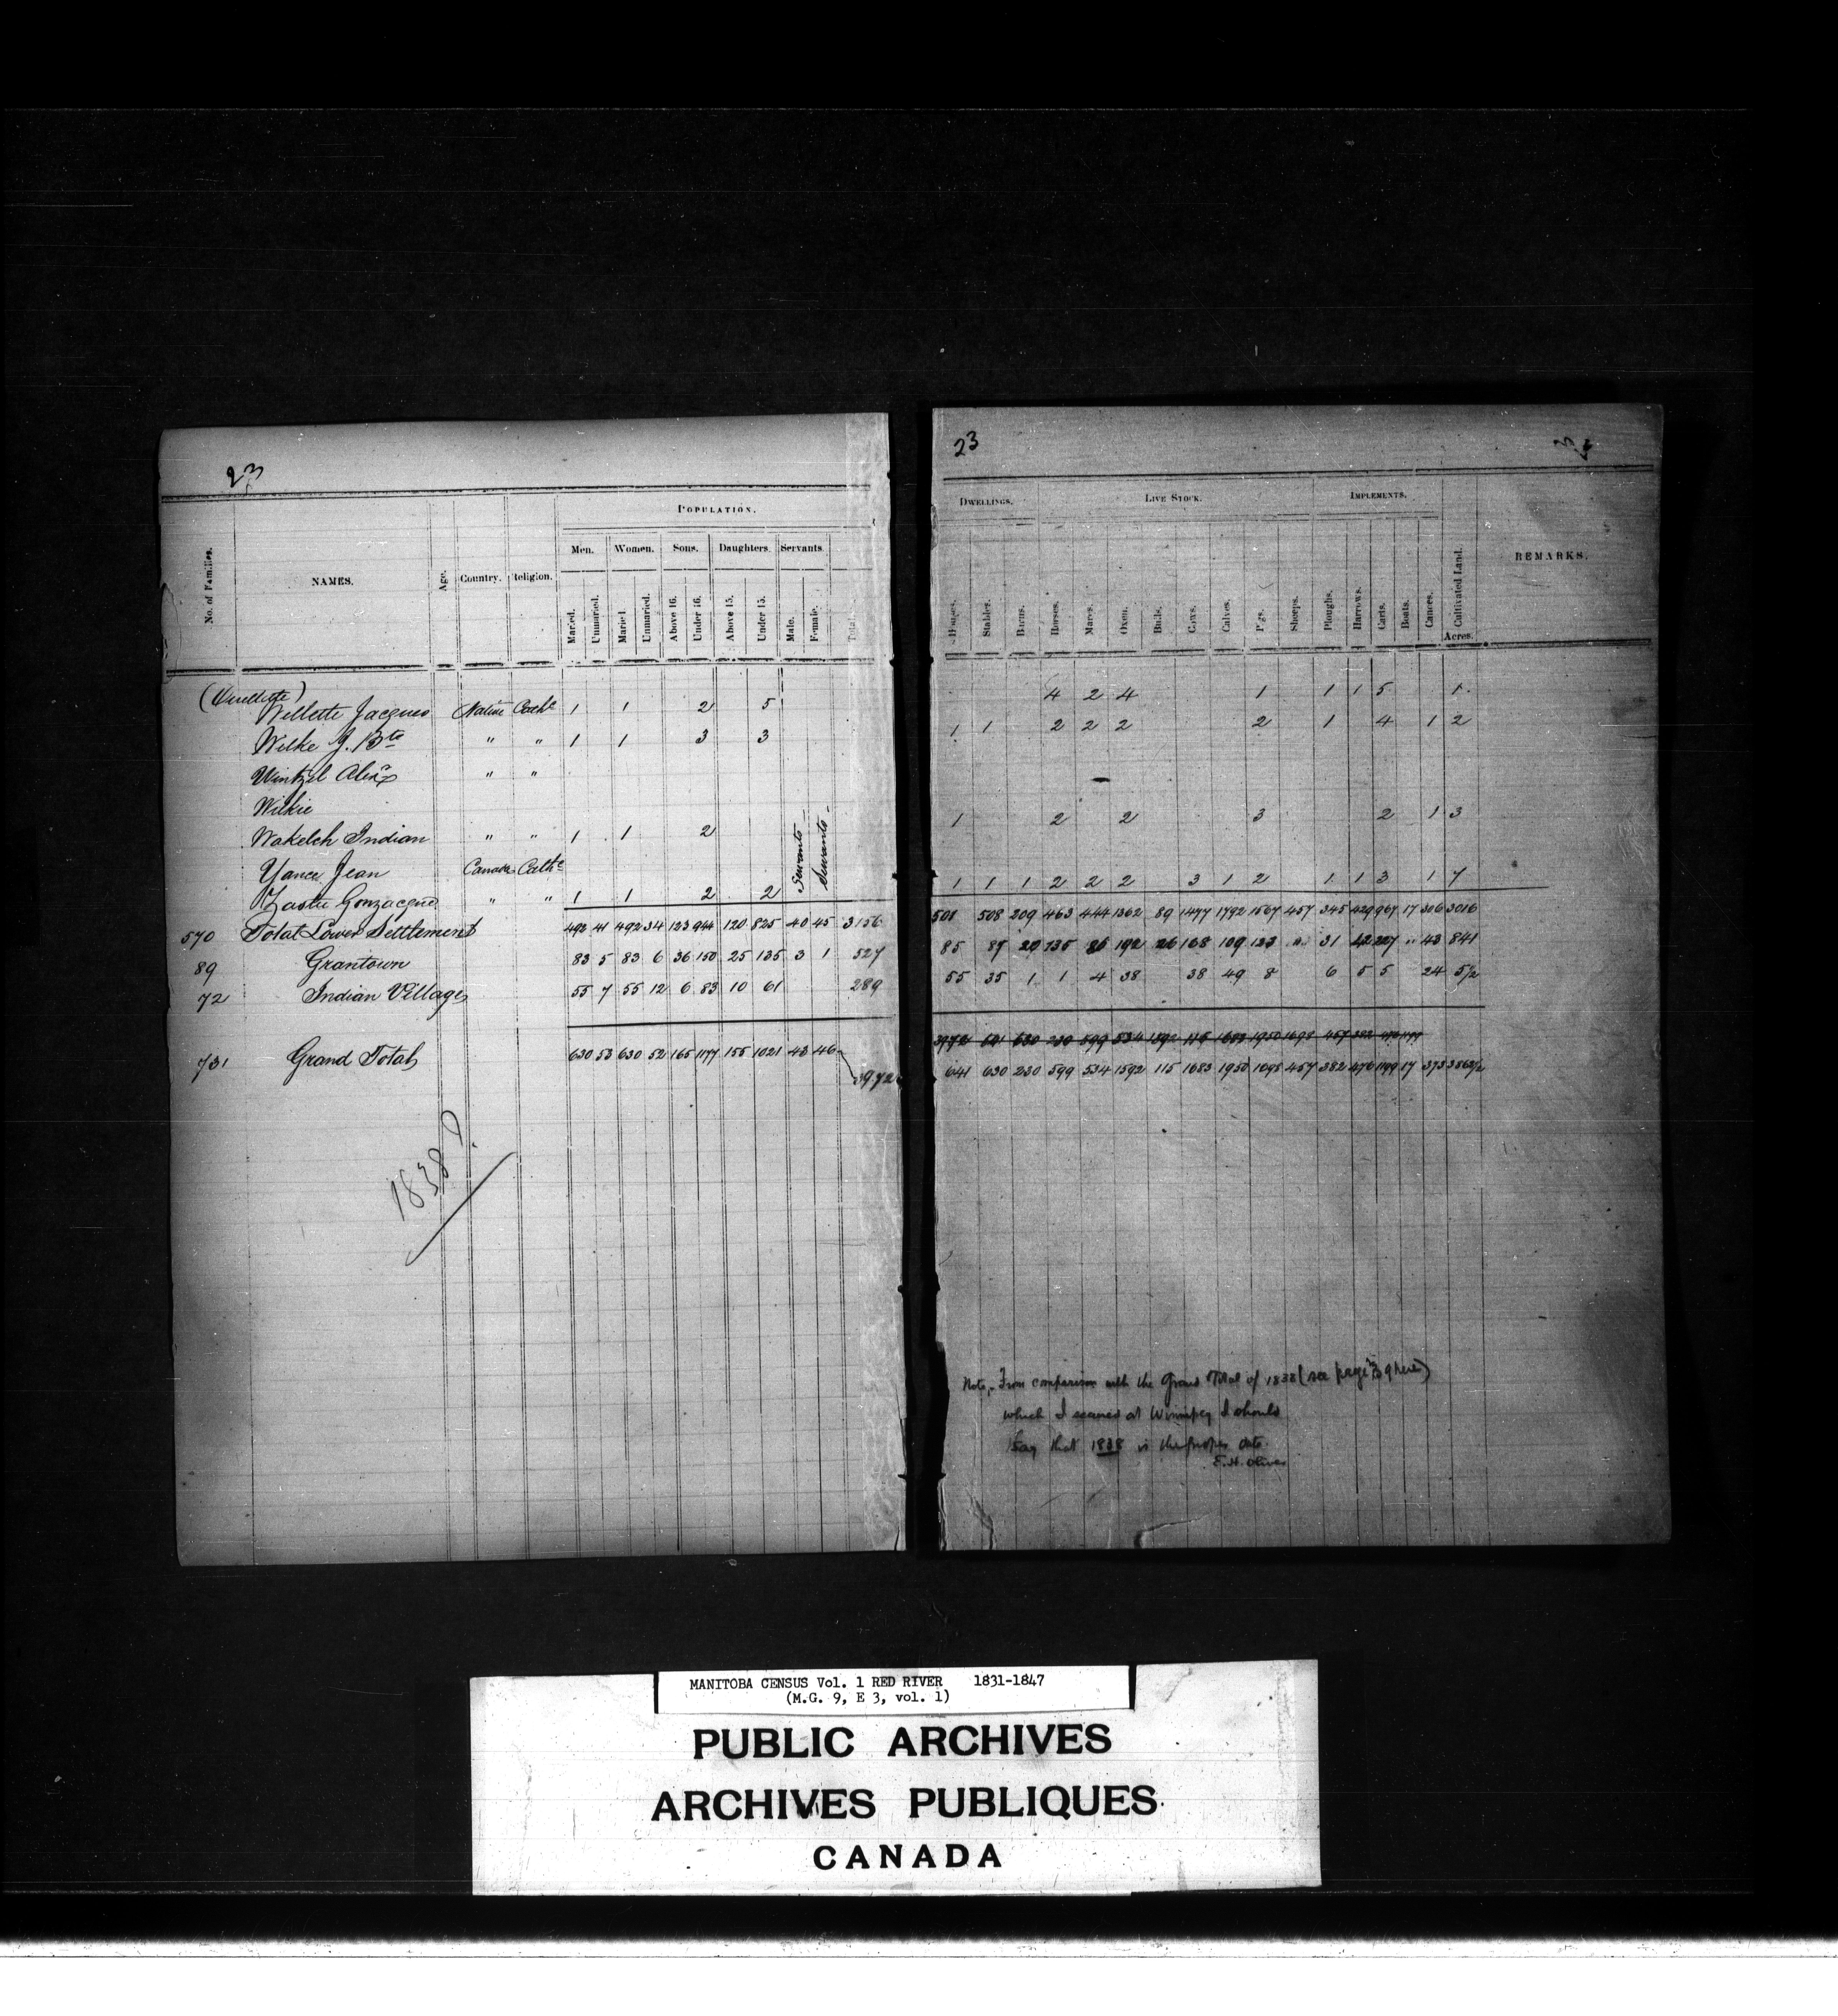 23
POPULATION.
Men. Women. Sons. Daughters. Servants.
No. of Families. NAMES. Age. Country. Religion. Married. Unmarried. Married. Unmarried. Above 16. Under 16. Above 15. Under 15. Male. Female. Total.
(Ouellette)
Willette Jacques Native Cathc 1 1 2 5
Wilke J. Bte " " 1 1 3 3
Wintzel Alexr " "
Wilkie
Wakelch Indian " " 1 1 2
Yance Jean Canada Cathc
Zastre Gonzacque " " 1 1 2 2
Servants Servants
570 Total Lower Settlement 492 41 492 34 123 944 120 825 40 45 3156
89 Grantown 83 5 83 6 36 150 25 135 3 1 527
72 Indian Villages 55 7 55 12 6 83 10 61 289
731 Grand Total 630 53 630 52 165 1177 155 1021 43 46 3972
1838?
23
DWELLINGS. LIVE STOCK. IMPLEMENTS.
Houses. Stables. Barns. Horses. Mares. Oxen. Bulls. Cows. Calves. Pigs. Sheeps. Ploughs. Harrows. Carts. Boats. Canoes. Cultivated Land. Acres. REMARKS.
4 2 4 1 1 1 5 1
1 1 2 2 2 2 1 4 1 2
1 2 2 3 2 1 3
1 1 1 2 2 2 3 1 2 1 1 3 1 7
508 209 463 444 1362 89 1477 1792 1567 457 345 429 967 17 306 3016
85 87 20 135 86 192 26 168 109 123 31 42 227 " 43 841
55 35 1 1 4 38 38 49 8 6 5 5 24 5½
3972 641 630 230 599 534 1592 115 1683 1950 1698 457 382 476 1199
641 630 230 599 534 1592 115 1683 1950 1698 457 382 476 1199 17 373 3862½
Note,- From comparison with the Grand Total of 1838 (see page 39 here)
which I secured at Winnipeg I should
say that 1838 is the proper date.
E.H. Oliver
MANITOBA CENSUS Vol. 1 RED RIVER 1831-1847
(M.G. 9, E 3, vol. 1)
PUBLIC ARCHIVES
ARCHIVES PUBLIQUES
CANADA